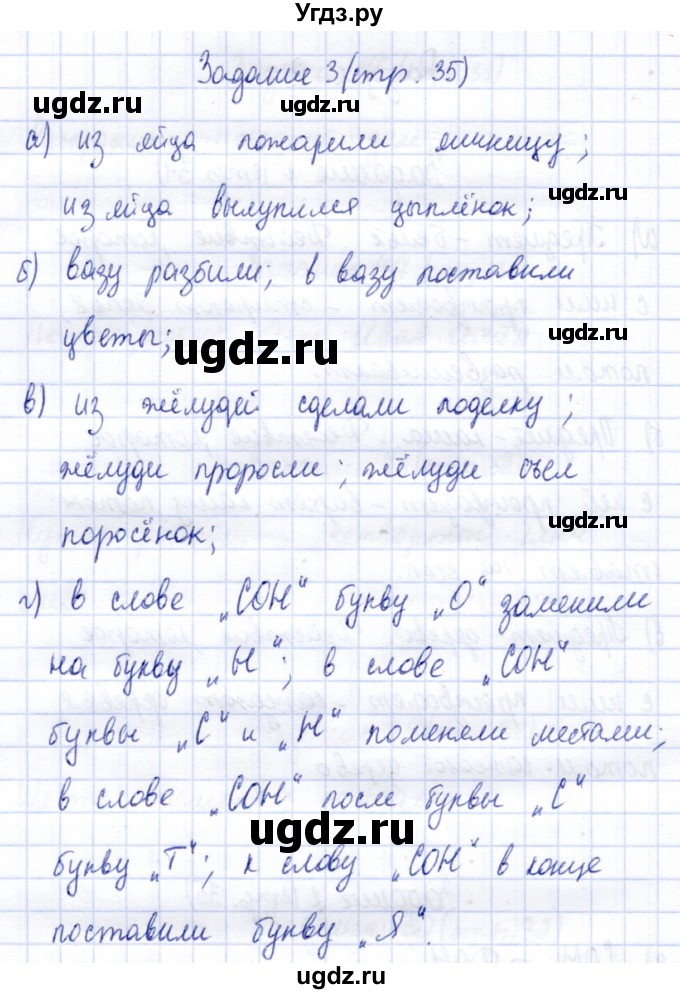 Угдз.ру
Задание 3 (стр. 35)
а) из яйца пожарили яишницу;
из яйца вылупился цыплёнок;
б) вазу разбили; в вазу поставили
цветы;
в) из жёлудей сделали поделку;
жёлуди проросли; жёлуди съел
поросёнок;
г) в слове „СОН“ букву „О“ заменили
на букву „Ы“; в слове „СОН“
буквы „С“ и „Н“ поменяли местами;
в слове „СОН“ после буквы „С“
букву „Т“; к слову „СОН“ в конце
поставили букву „Я“.
ugdz.ru
ugdz.ru
ugdz.ru
ugdz.ru
ugdz.ru
ugdz.ru
ugdz.ru
ugdz.ru
ugdz.ru
ugdz.ru
ugdz.ru
ugdz.ru